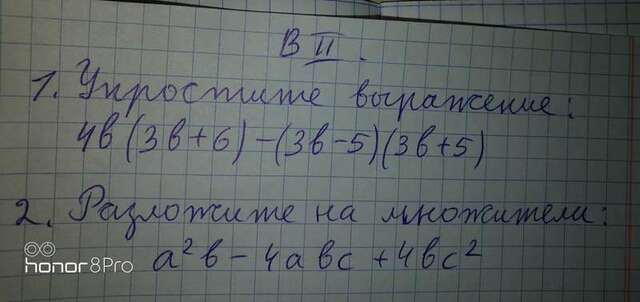 В II.
1. Упростите выражение:
4в(3в+6)-(3в-5)(3в+5)
2. Разложите на множители:
a²в-4авс+4вс²
honor8Pro